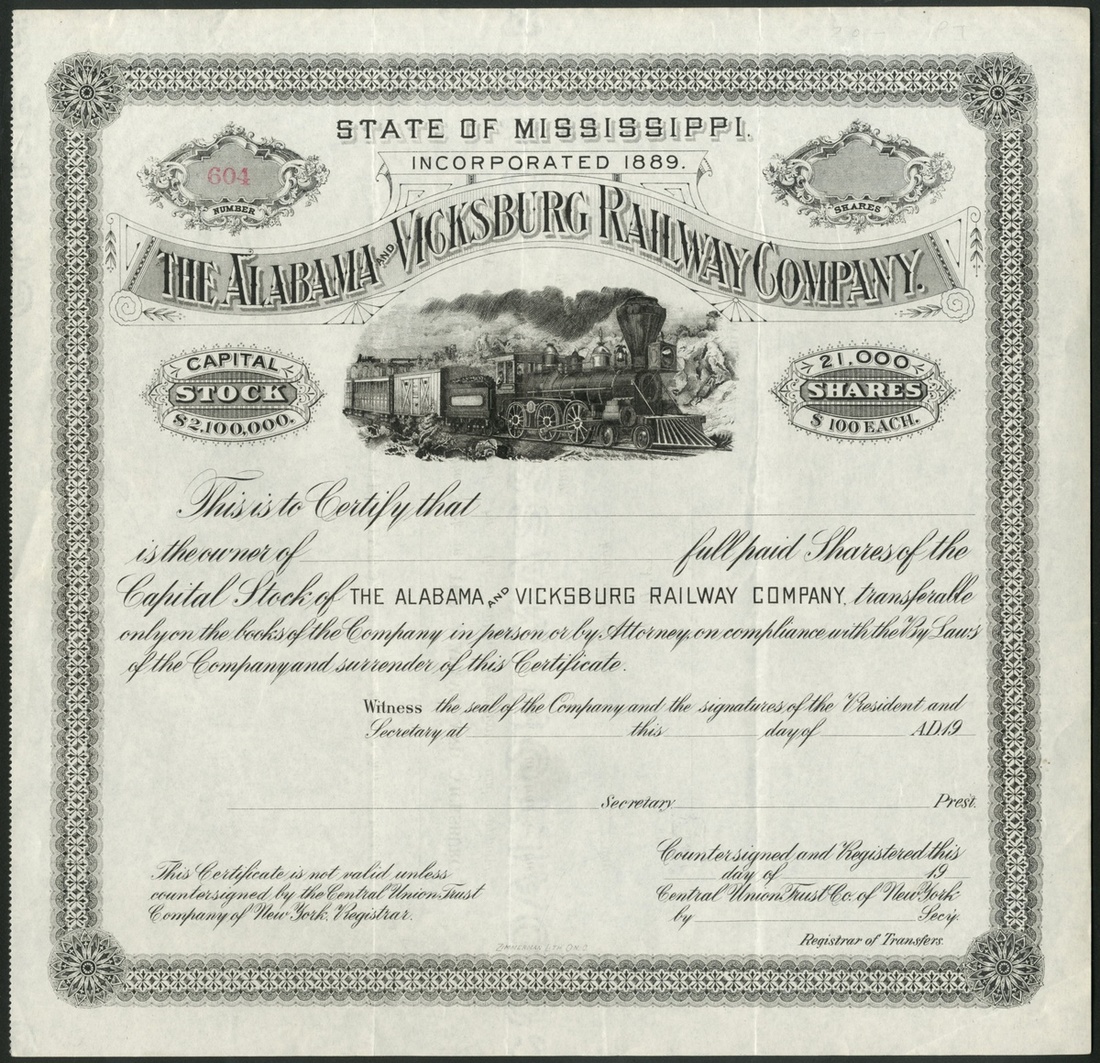 STATE OF MISSISSIPPI.
INCORPORATED 1889.
604
NUMBER
SHARES
THE ALABAMA AND VICKSBURG RAILWAY COMPANY.
CAPITAL
STOCK
$2,100,000.
21,000
SHARES
$100 EACH.
This is to Certify that
is the owner of full paid Shares of the
Capital Stock of THE ALABAMA AND VICKSBURG RAILWAY COMPANY, transferable
only on the books of the Company in person or by Attorney, on compliance with the By Laws
of the Company and surrender of this Certificate.
Witness the seal of the Company and the signatures of the President and
Secretary at this day of A.D. 19
Secretary Prest.
This Certificate is not valid unless
countersigned by the Central Union Trust
Company of New York, Registrar.
Countersigned and Registered this
day of 19
Central Union Trust Co. of New York
by Secy.
Registrar of Transfers.